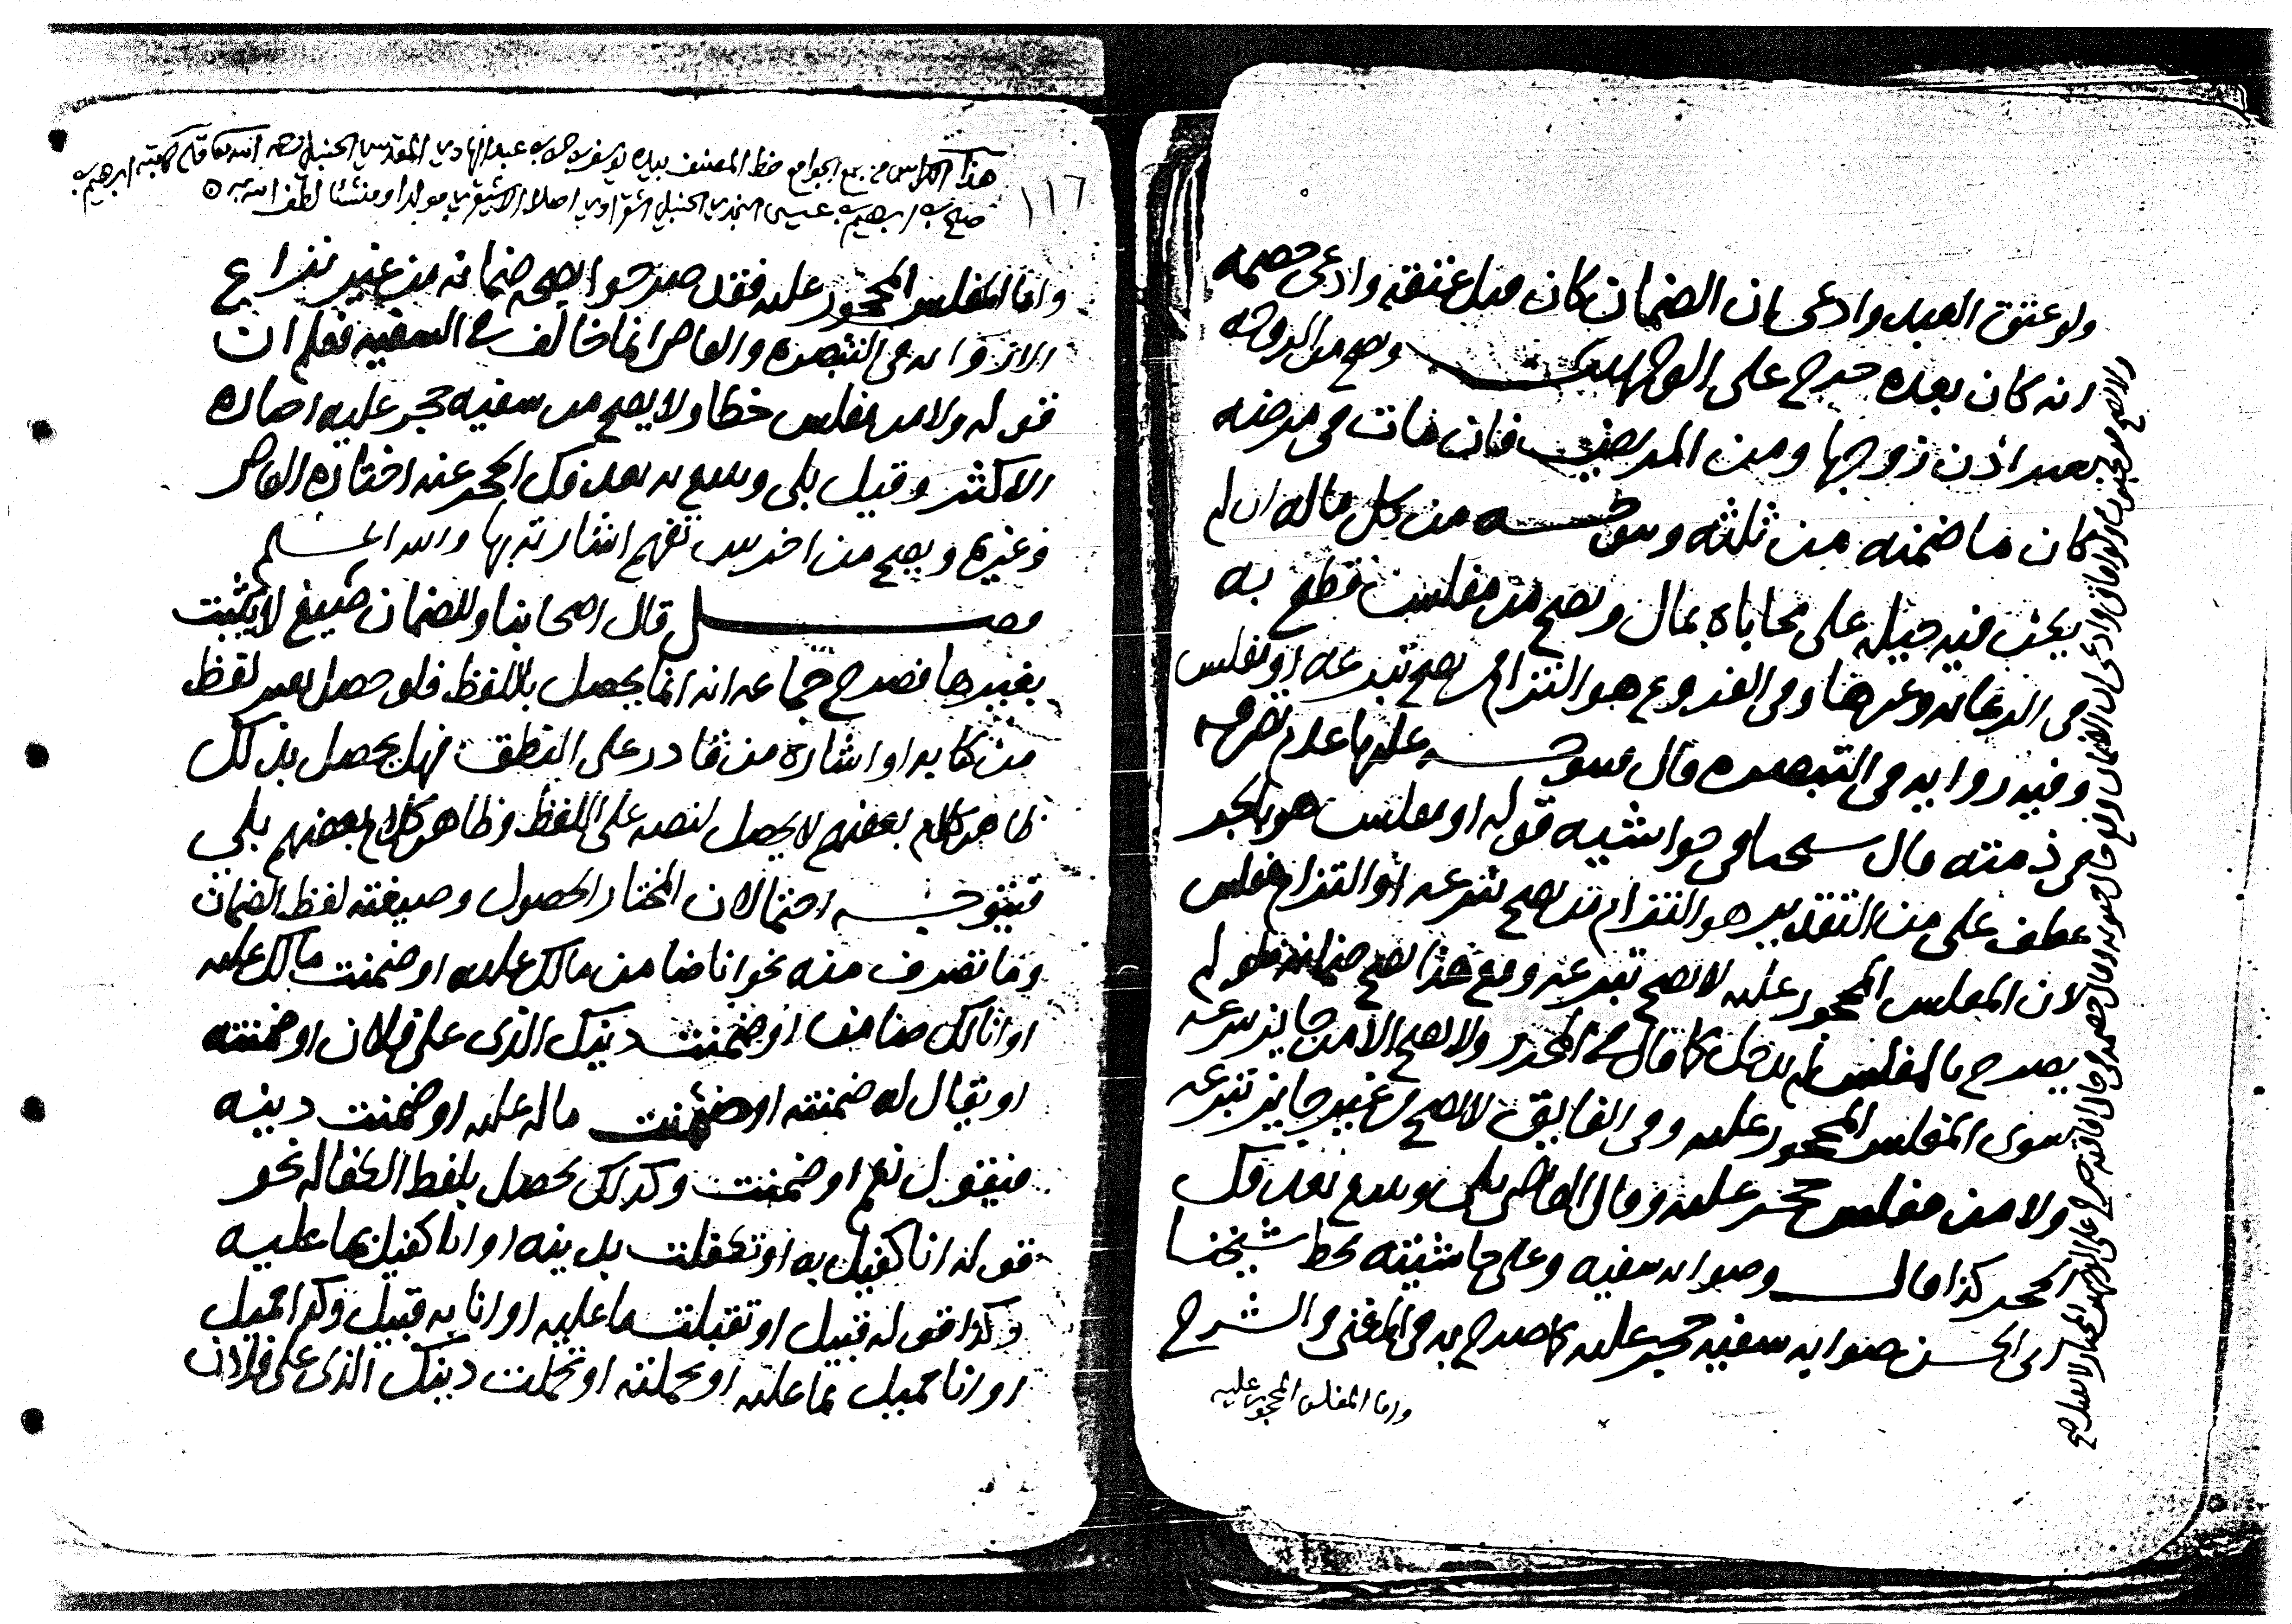 ولو عتق العبد وادعى ان الضمان كان قبل عتقه وادعى خصمه
انه كان بعده خرج على الوجهين ويصح من الزوجة
بغير اذن زوجها ومن المريض فان مات في مرضه
كان ما ضمنه من ثلثه ويتوجه من كل ماله ان لم
يكن فيه حيلة على محاباة بمال ويصح من مفلس قطع به
في الرعاية وغيرها وفي الفروع هو التزام من يصح تبرعه او مفلس
وفيه رواية في التبصرة قال ويتوجه عليها عدم تصرفه
في ذمته قال شيخنا في حواشيه قوله او مفلس هو بالجر
عطف على من التقدير هو التزام من يصح تبرعه او التزام مفلس
لان المفلس المحجور عليه لا يصح تبرعه ومع هذا يصح ضمانه فلو لم
يصرح بالمفلس لم يدخل كما قال في المحرر ولا يصح الا من جايز تبرعه
سوى المفلس المحجور عليه وفي الفايق لا يصح من غير جايز تبرعه
ولا من مفلس حجر عليه وقال القاضي بلى ويتبع بعد فك
الحجر كذا قال وصوابه سفيه وعلى حاشيته بخط شيخنا
ابي الحسن صوابه سفيه حجر عليه كما صرح به في المغني والشرح
واما المفلس المحجور عليه
ولا يصح من مجنون ولو افاق وادعى ان الضمان وقع حال جنونه وقال خصمه في حال افاقته خرج على الوجهين
١١٦
هذا الكراس من جمع الجوامع خط المصنف بيده يوسف بن حسن بن عبد الهادي المقدسي الحنبلي رحمه الله تعالى قاله كاتبه ابراهيم بن
صالح بن ابراهيم بن عيسى النجدي الحنبلي الشقراوي اصلا الاشيقري مولدا ومنشئا لطف الله به
واما المفلس المحجور عليه فقد صرحوا بصحة ضمانه من غير نزاع
الا رواية في التبصرة والقاضي انما خالف في السفيه فعلم ان
قوله ولا من مفلس خطا ولا يصح من سفيه حجر عليه اختاره
الاكثر وقيل بلى ويتبع به بعد فك الحجر عنه اختاره القاضي
وغيره ويصح من اخرس تفهم اشارته بها والله اعلم
فصل قال اصحابنا وللضمان صيغ لا يثبت
بغيرها فصرح جماعة انه انما يحصل باللفظ فلو حصل بغير لفظ
من كتابة او اشارة من قادر على النطق فهل يحصل بذلك
ظاهر كلام بعضهم لا يحصل لنصه على اللفظ وظاهر كلام بعضهم بلى
فيتوجه احتمالان المختار الحصول وصيغته لفظ الضمان
وما تصرف منه نحو انا ضامن مالك عليه او ضمنت مالك عليه
او انا لك ضامن او ضمنت دينك الذي على فلان او ضمنته
او يقال له ضمنته او ضمنت ماله عليه او ضمنت دينه
فيقول نعم او ضمنت وكذلك يحصل بلفظ الكفالة نحو
قوله انا كفيل به او تكفلت بدينه او انا كفيل بما عليه
وكذا قوله قبيل او تقبلت ما عليه او انا به قبيل وكذا حميل
او انا حميل بما عليه او تحملته او تحملت دينك الذي على فلان